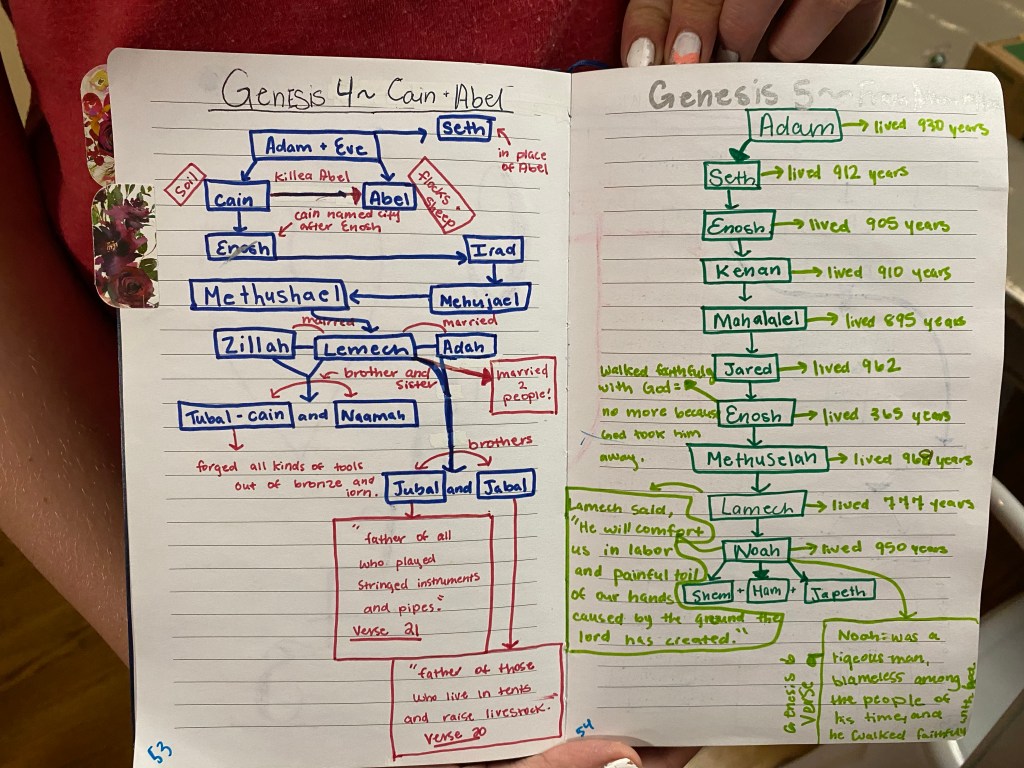 Genesis 4~ Cain + Abel
Seth
Adam + Eve
in place
of Abel
Soil
Killed Abel
flocks.
sheep
Cain
Abel
cain named city
after Enosh
Enosh
Irad
Methushael
Mehujael
married
married
Zillah
Lemech
Adah
brother and
sister
married
2
people!
Tubal-cain and Naamah
brothers
forged all kinds of tools
out of bronze and
iorn.
Jubal and Jabal
"father of all
who played
stringed instruments
and pipes."
verse 21
"father of those
who live in tents
and raise livestock.
verse 20
53
Genesis 5~
Adam → lived 930 years
Seth → lived 912 years
Enosh → lived 905 years
Kenan → lived 910 years
Mahalalel → lived 895 years
Jared → lived 962
walked faithfully
with God =
no more becaus
God took him
away.
Enosh → lived 365 years
Methuselah → lived 969 years
Lamech → lived 777 years
Lamech said,
"He will comfort
us in labor
and painful toil
of our hands
caused by the ground the
lord has created."
Noah → lived 950 years
Shem + Ham + Japeth
Noah = was a
rigeous man,
blameless among
the people of
his time, and
he walked faithfully
with
Genesis 6
verse
54